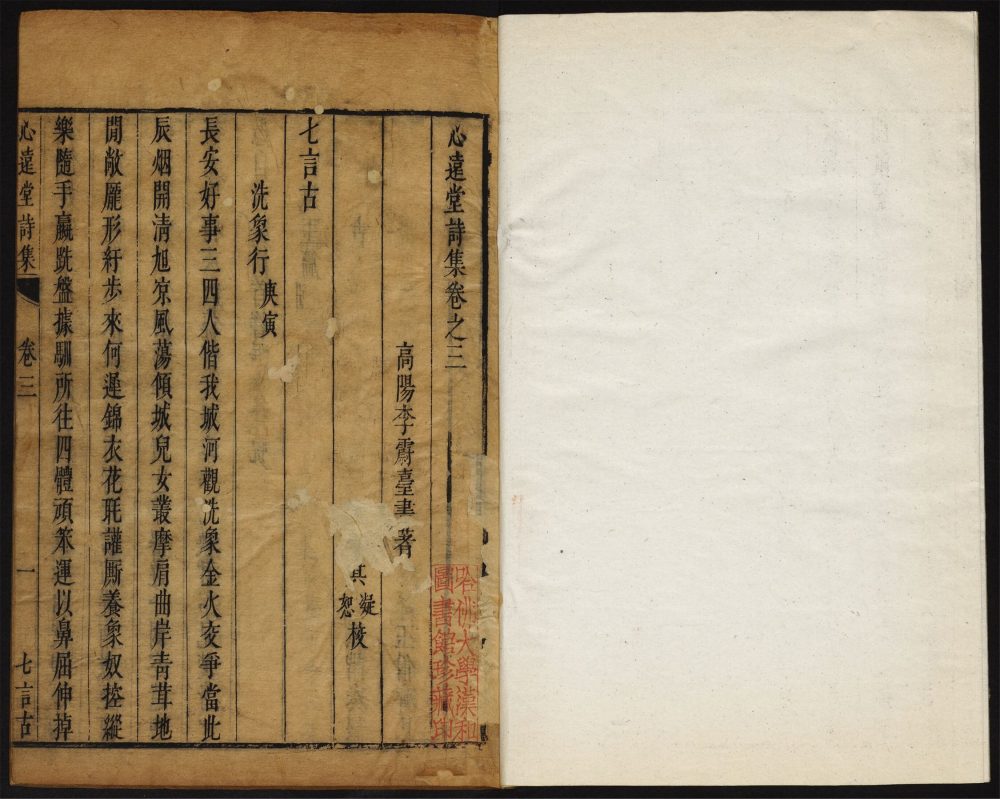 心遠堂詩集卷之三
高陽李霨臺書著
其凝
恕校
七言古
洗象行庚寅
長安好事三四人偕我城河觀洗象金火交爭當此
辰烟開清旭凉風蕩傾城兒女叢摩肩曲岸靑茸地
閒敞龎形紆步來何遲錦衣花毦讙厮養象奴控縱
樂隨手羸跣盤據馴所往四體頑笨運以鼻屈伸掉
心遠堂詩集 卷三 一 七言古
哈佛大學漢和
圖書館珍藏印